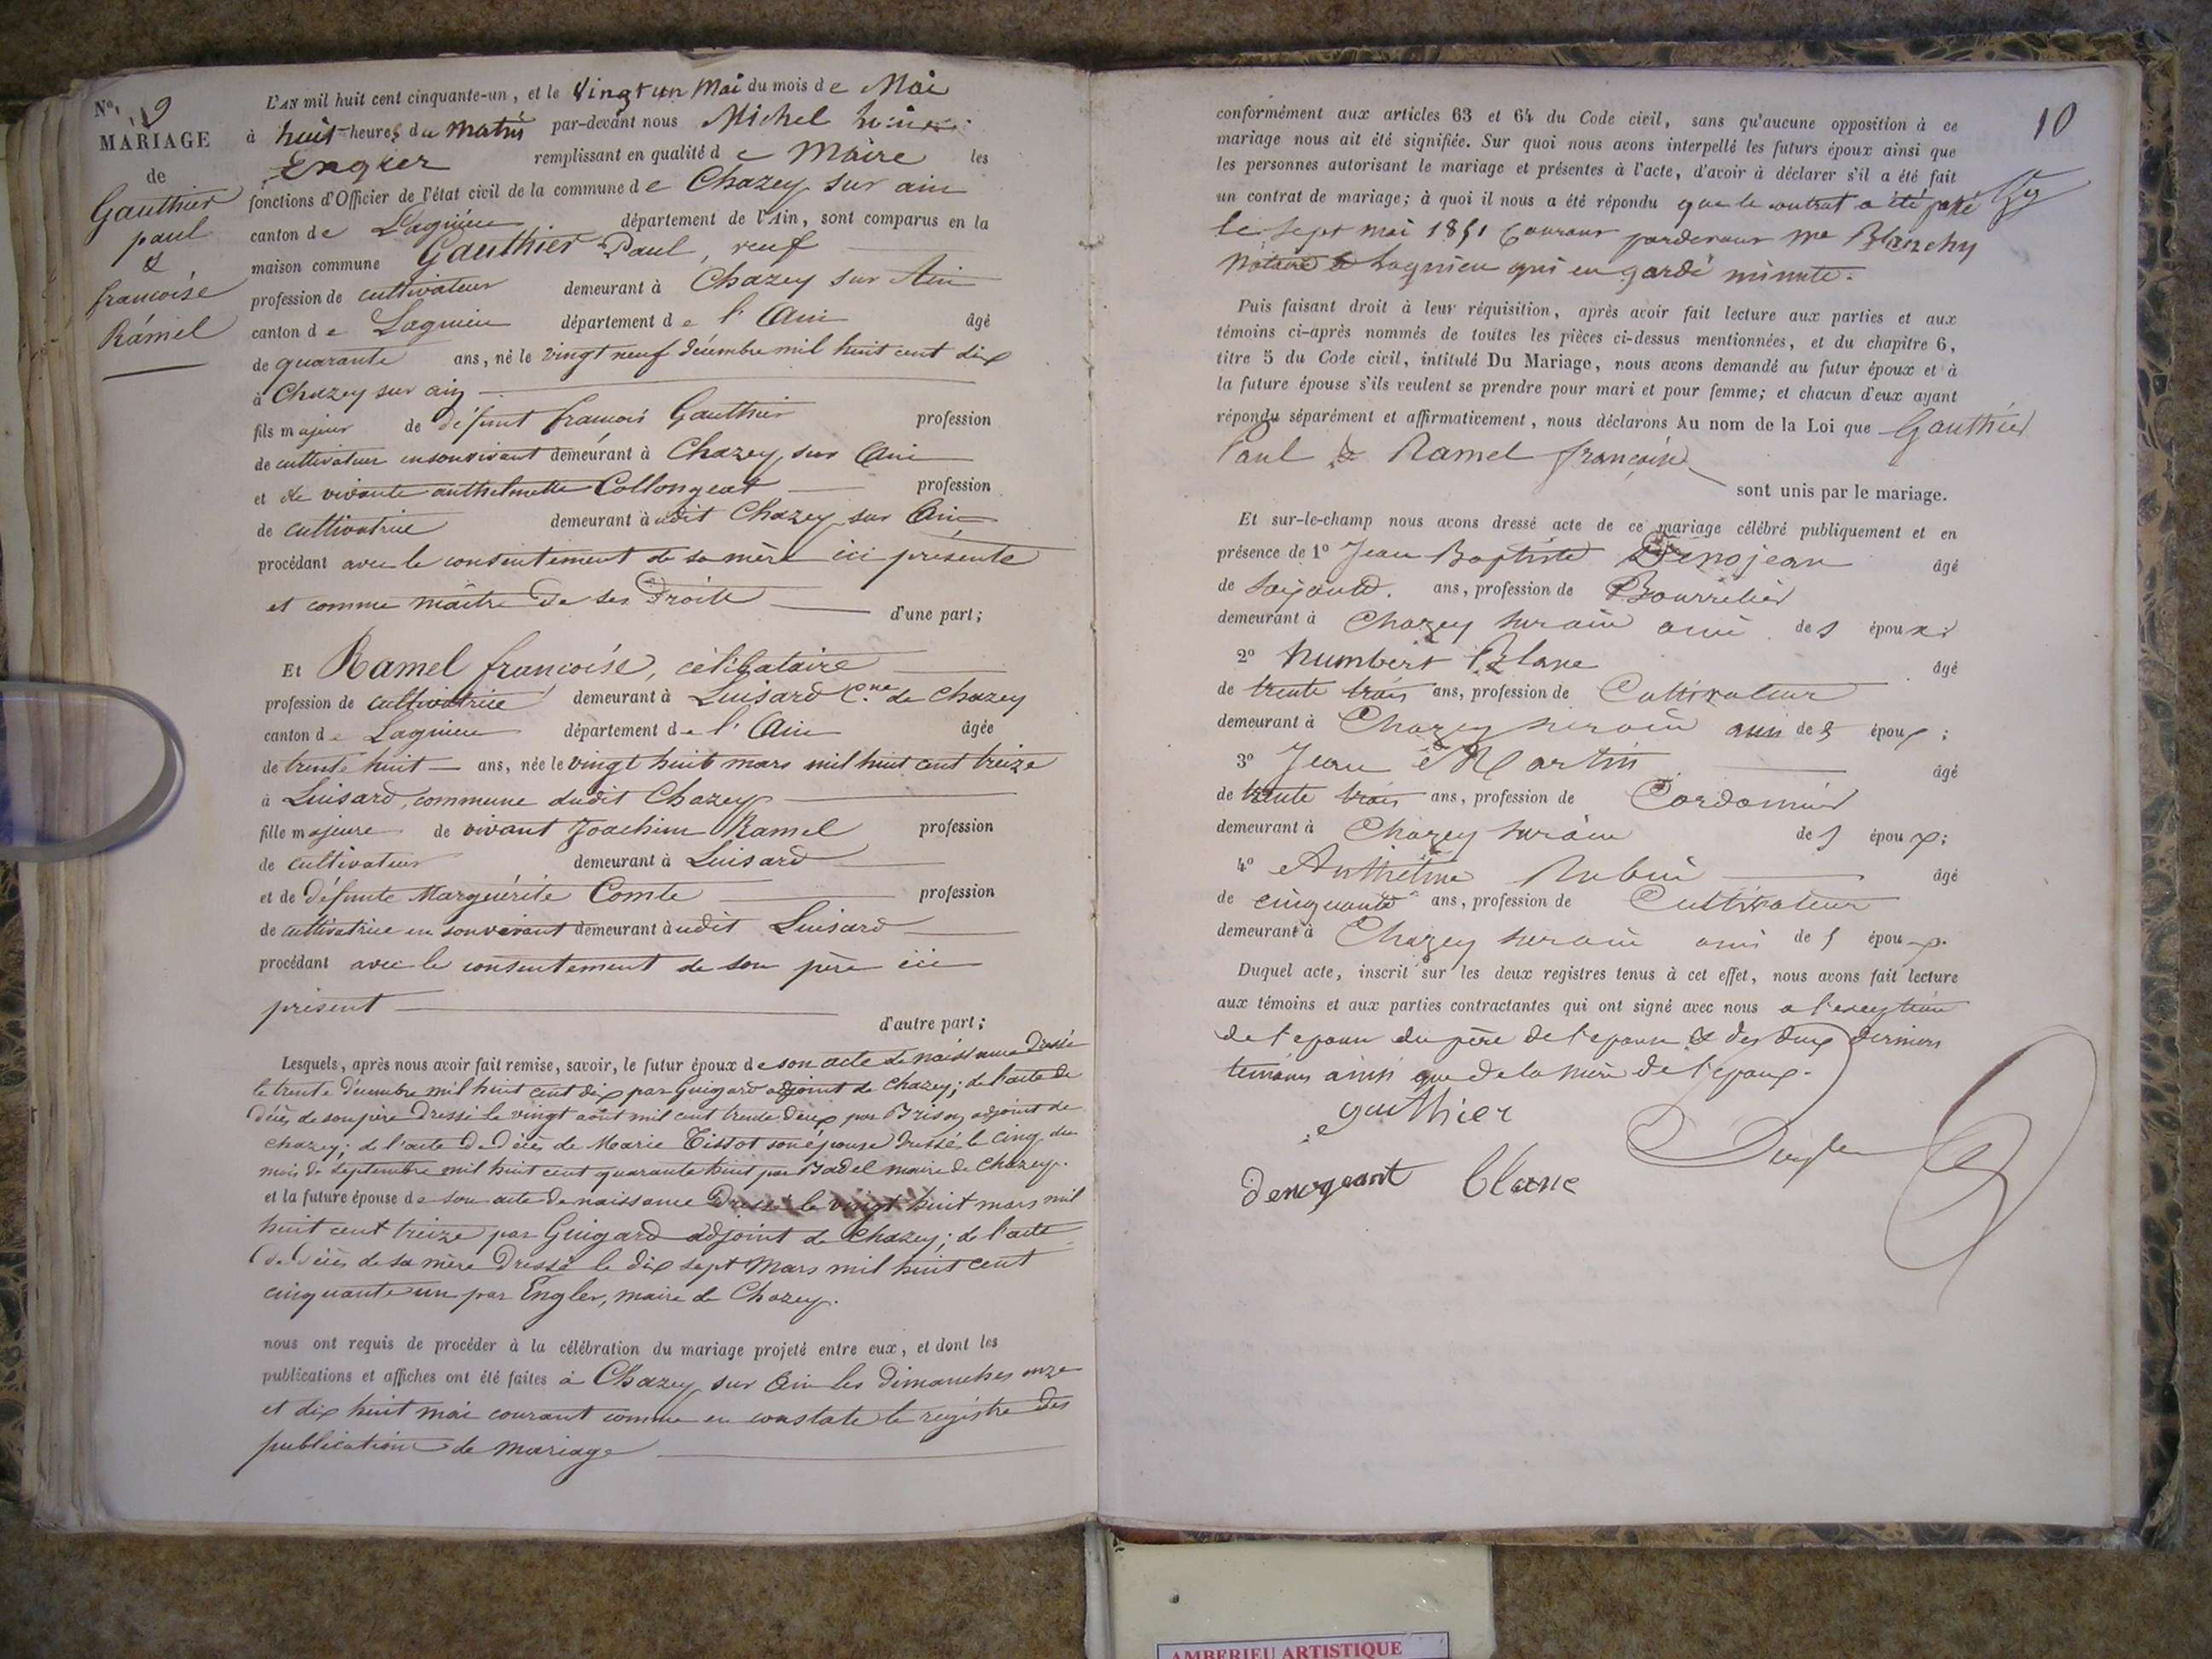 N° 9
MARIAGE
de
Gauthier
paul
&
francoise
Ramel
L'AN mil huit cent cinquante-un, et le Vingt un Mai du mois de Mai
à huit heures du matin par-devant nous Michel
Engler remplissant en qualité de Maire les
fonctions d'Officier de l'état civil de la commune de Chazey sur ain
canton de Lagnieu département de l'Ain, sont comparus en la
maison commune Gauthier Paul, veuf
profession de cultivateur demeurant à Chazey sur Ain
canton de Lagnieu département de l'Ain âgé
de quarante ans, né le vingt neuf décembre mil huit cent dix
à Chazey sur ain
fils majeur de défunt francois Gauthier profession
de cultivateur en son vivant demeurant à Chazey sur Ain
et de vivante anthelmette Collongeat profession
de cultivatrice demeurant à udit Chazey sur Ain
procédant avec le consentement de sa mère ici présente
et comme maître de ses Droits d'une part;
Et Ramel francoise, célibataire
profession de cultivatrice demeurant à Luisard Cne de Chazey
canton de Lagnieu département de l'Ain âgée
de trente huit ans, née le vingt huit mars mil huit cent treize
à Luisard, commune dudit Chazey
fille majeure de vivant Joachim Ramel profession
de cultivateur demeurant à Luisard
et de défunte Marguérite Comte profession
de cultivatrice en son vivant demeurant à udit Luisard
procédant avec le consentement de son père ici
présent
d'autre part;
Lesquels, après nous avoir fait remise, savoir, le futur époux de son acte de naissance Dressé
le trente décembre mil huit cent dix par Guigard adjoint de Chazey; de l'acte de
décès de son père Dressé le vingt août mil cent trente deux par Brison adjoint de
chazey; de l'acte De Décès de Marie Tissot son épouse Dressé le cinq du
mois de septembre mil huit cent quarante huit par Badel maire de Chazey.
et la future épouse de son acte de naissance Dressé le vingt huit mars mil
huit cent treize par Guigard adjoint de Chazey; de l'acte
de Décès de sa mère Dressé le dix sept Mars mil huit cent
cinquante un par Engler, maire de Chazey.
nous ont requis de procéder à la célébration du mariage projeté entre eux, et dont les
publications et affiches ont été faites à Chazey sur Ain les Dimanches onze
et dix huit mai courant comme en constate le registre des
publications de mariage
10
conformément aux articles 63 et 64 du Code civil, sans qu'aucune opposition à ce
mariage nous ait été signifiée. Sur quoi nous avons interpellé les futurs époux ainsi que
les personnes autorisant le mariage et présentes à l'acte, d'avoir à déclarer s'il a été fait
un contrat de mariage; à quoi il nous a été répondu que le contrat a été passé
le sept mai 1851 courant pardevant Me Blanchy
Notaire à Lagnieu qui en garde minute.
Puis faisant droit à leur réquisition, après avoir fait lecture aux parties et aux
témoins ci-après nommés de toutes les pièces ci-dessus mentionnées, et du chapitre 6,
titre 5 du Code civil, intitulé Du Mariage, nous avons demandé au futur époux et à
la future épouse s'ils veulent se prendre pour mari et pour femme; et chacun d'eux ayant
répondu séparément et affirmativement, nous déclarons Au nom de la Loi que Gauthier
Paul & Ramel françoise
sont unis par le mariage.
Et sur-le-champ nous avons dressé acte de ce mariage célébré publiquement et en
présence de 1° Jean Baptiste Denojean âgé
de ans, profession de Bourrelier
demeurant à Chazey sur ain ami des époux;
2° humbert Blanc âgé
de trente trois ans, profession de Cultivateur
demeurant à Chazey sur ain ami des époux;
3° Jean Martin âgé
de trente trois ans, profession de Cordonnier
demeurant à Chazey sur ain des époux;
4° Anthelme Rubin âgé
de cinquante ans, profession de Cultivateur
demeurant à Chazey sur ain ami des époux.
Duquel acte, inscrit sur les deux registres tenus à cet effet, nous avons fait lecture
aux témoins et aux parties contractantes qui ont signé avec nous a l'exception
de l'epouse du père de l'epouse & des deux derniers
temoins ainsi que de la mère de l'epoux.
gauthier
denogeant blanc Engler
AMBERIEU ARTISTIQUE